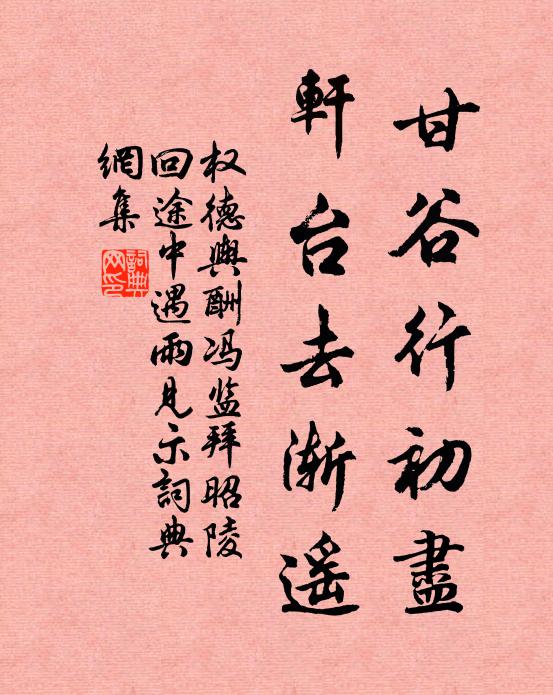 甘谷行初盡
軒台去渐遥
权德輿酬冯监拜昭陵
回途中遇雨見示詞典
網集
詞典
网印